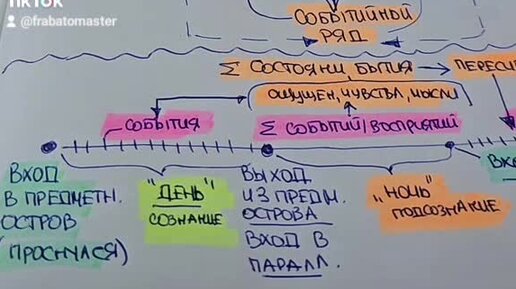 TIKTOK
@frabatomaster
СОБЫТИЙНОЙ
РЯД
Σ СОСТОЯНИ, БЫТИЯ
ОЩУЩЕН, ЧУВСТВ, МЫСЛИ
СОБЫТИЯ
Σ СОБЫТИЙ/ВОСПРИЯТИЙ
ВХОД
В ПРЕДМЕТН.
ОСТРОВ
(ПРОСНУЛСЯ)
"ДЕНЬ"
СОЗНАНИЕ
ВЫХОД
ИЗ ПРЕДМ.
ОСТРОВА
ВХОД В
ПАРАЛЛ.
"НОЧЬ"
ПОДСОЗНАНИЕ